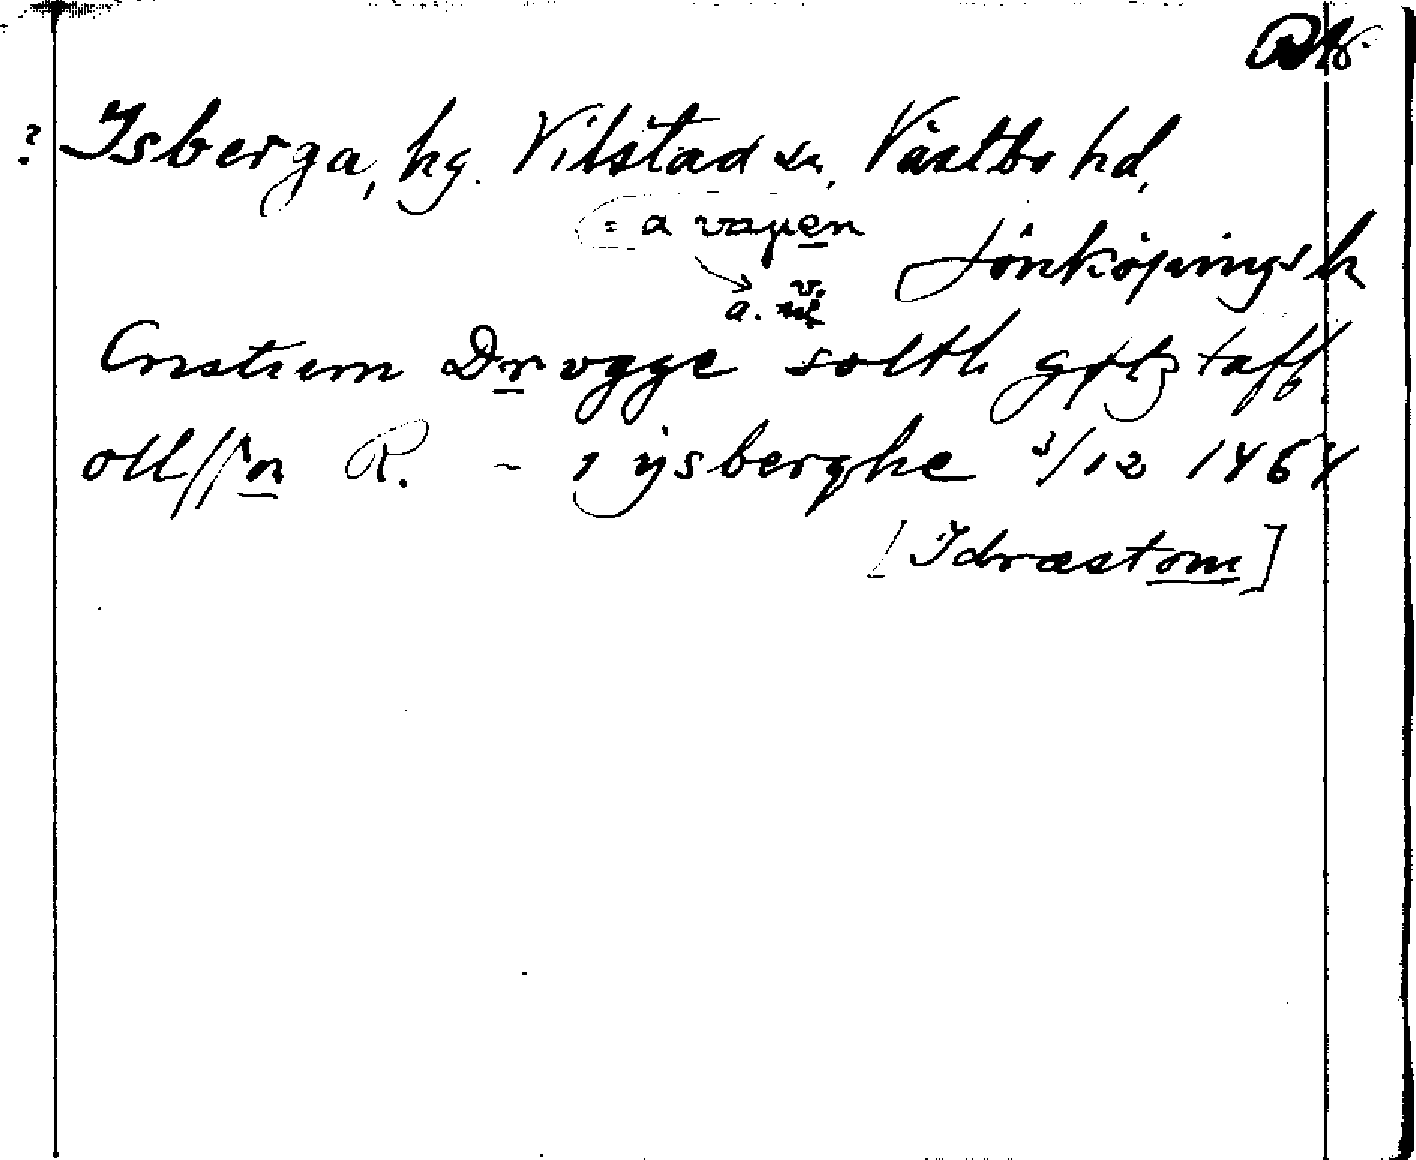 ? Isberga, hg. Vilstad sn, Västbo hd,
= a vapen
Jönköpings l
a. v.
Cristiern Drvgge solth gotz taff
oll ssn R. ~ j ÿsberghe 3/12 1464
[Idræstom]